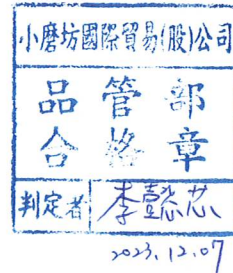 小磨坊國際貿易(股)公司
品管部
合格章
判定者 李懿芯
2023.12.07